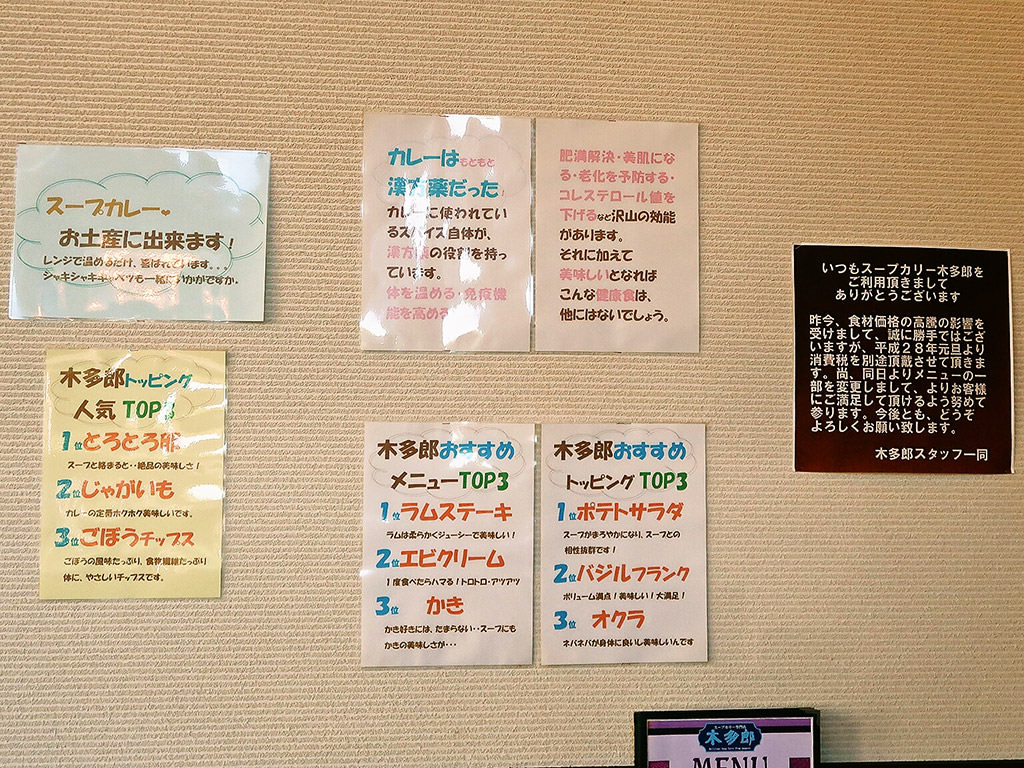 スープカレー♥
お土産に出来ます!
レンジで温めるだけ、喜ばれています。。。
シャキシャキキャベツも一緒にいかがですか。
カレーはもともと
漢方薬だった!
カレーに使われてい
るスパイス自体が、
漢方薬の役割を持っ
ています。
体を温める・免疫機
能を高める
肥満解決・美肌にな
る・老化を予防する・
コレステロール値を
下げるなど沢山の効能
があります。
それに加えて
美味しいとなれば
こんな健康食は、
他にはないでしょう。
いつもスープカリー木多郎を
ご利用頂きまして
ありがとうございます
昨今、食材価格の高騰の影響を
受けまして、誠に勝手ではござ
いますが、平成28年元旦より
消費税を別途頂戴させて頂きま
す。尚、同日よりメニューの一
部を変更しまして、よりお客様
にご満足して頂けるよう努めて
参ります。今後とも、どうぞ
よろしくお願い致します。
木多郎スタッフ一同
木多郎トッピング
人気 TOP3
1位とろとろ
スープと絡まると・・絶品の美味しさ!
2位じゃがいも
カレーの定番ホクホク美味しいです。
3位ごぼうチップス
ごぼうの風味たっぷり、食物繊維たっぷり
体に、やさしいチップスです。
木多郎おすすめ
メニューTOP3
1位ラムステーキ
ラムは柔らかくジューシーで美味しい!
2位エビクリーム
1度食べたらハマる!トロトロ・アツアツ
3位 かき
かき好きには、たまらない・・スープにも
かきの美味しさが・・・
木多郎おすすめ
トッピング TOP3
1位ポテトサラダ
スープがまろやかになり、スープとの
相性抜群です!
2位バジルフランク
ボリューム満点!美味しい!大満足!
3位 オクラ
ネバネバが身体に良いし美味しいんです
木多郎
MENU